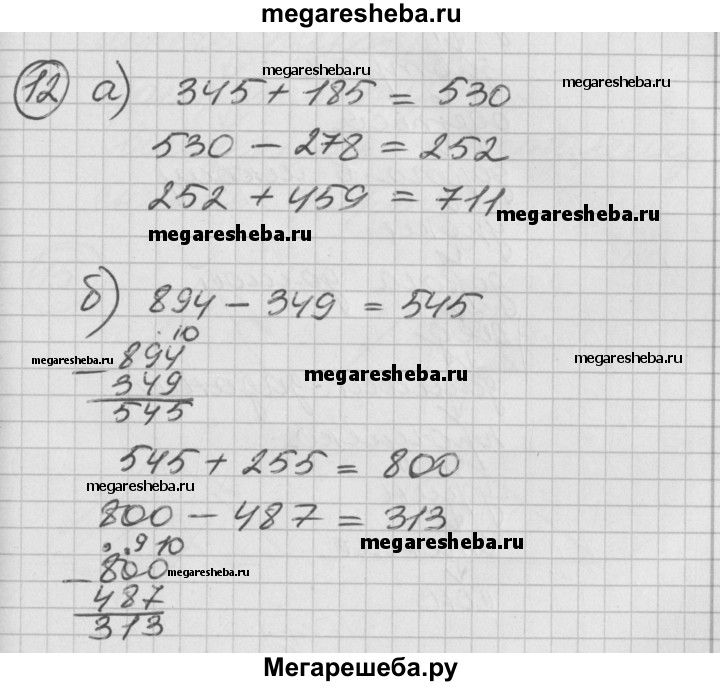 megaresheba.ru
12 а) 345 + 185 = 530
megaresheba.ru
megaresheba.ru
530 - 278 = 252
252 + 459 = 711
megaresheba.ru
megaresheba.ru
б) 894 - 349 = 545
. 10
megaresheba.ru
- 894
megaresheba.ru
349
megaresheba.ru
545
545 + 255 = 800
megaresheba.ru
800 - 487 = 313
megaresheba.ru
. . 9 10
- 800
megaresheba.ru
487
313
Мегарешеба.ру